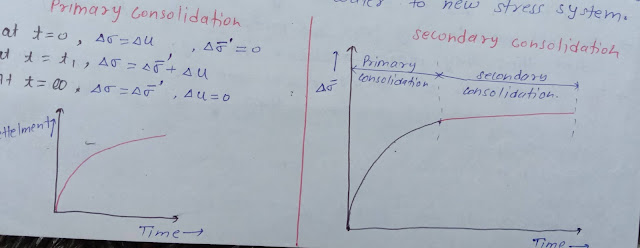 Primary Consolidation
at t=0, Δσ=Δu, Δσ̄'=0
at t=t₁, Δσ=Δσ̄'+Δu
At t=∞, Δσ=Δσ̄', Δu=0
Time→
to new stress system.
secondary consolidation
Primary consolidation
secondary consolidation.
Δσ̄
Time→